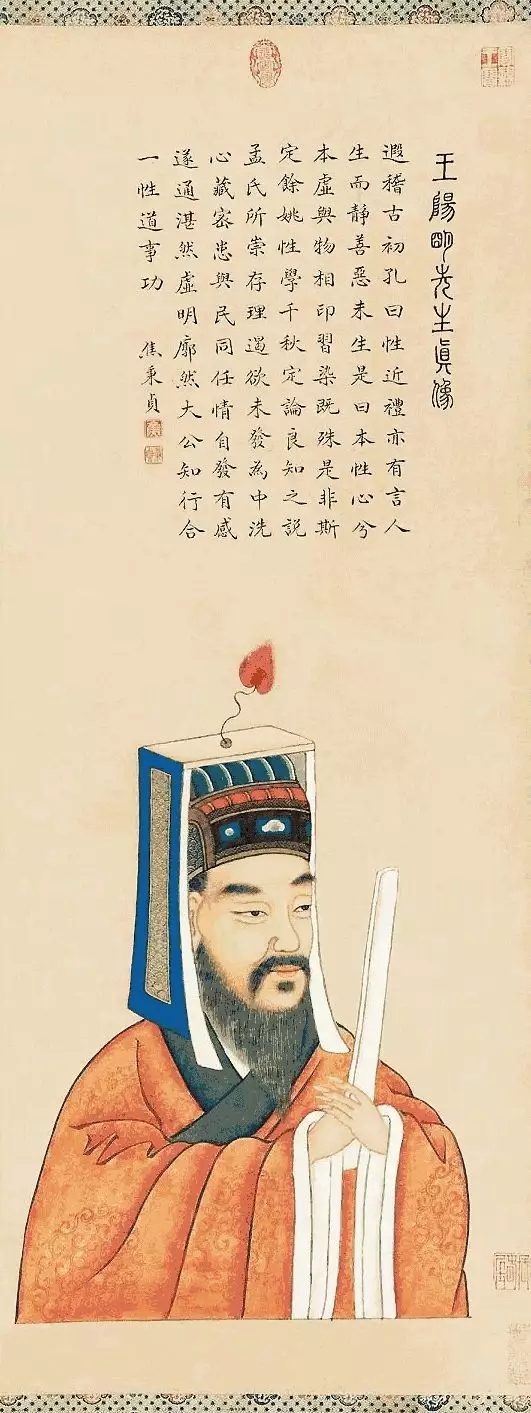 王陽明先生眞像
遐稽古初孔曰性近禮亦有言人
生而靜善惡未生是曰本性心兮
本虛與物相印習染既殊是非斯
定餘姚性學千秋定論良知之説
孟氏所崇存理遏欲未發為中洗
心藏密患與民同任情自發有感
遂通湛然虛明廓然大公知行合
一性道事功
焦秉貞